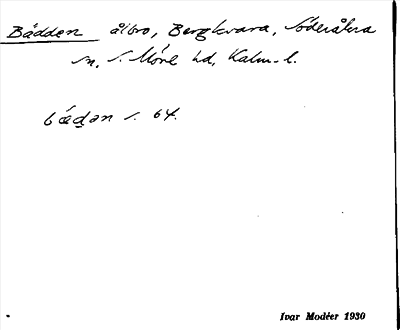 Bådden ålbro, Bergkvara, Söderåkra
sn, S. Möre hd, Kalm. l.
bǽḍən s. 64.
Ivar Modéer 1930